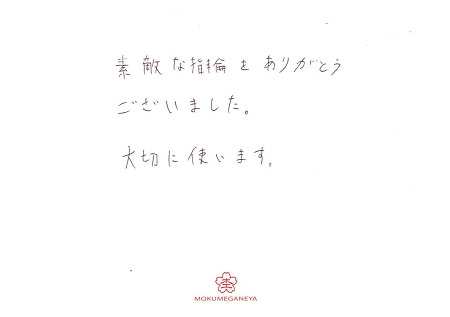 素敵な指輪をありがとう
ございました。
大切に使います。
MOKUMEGANEYA